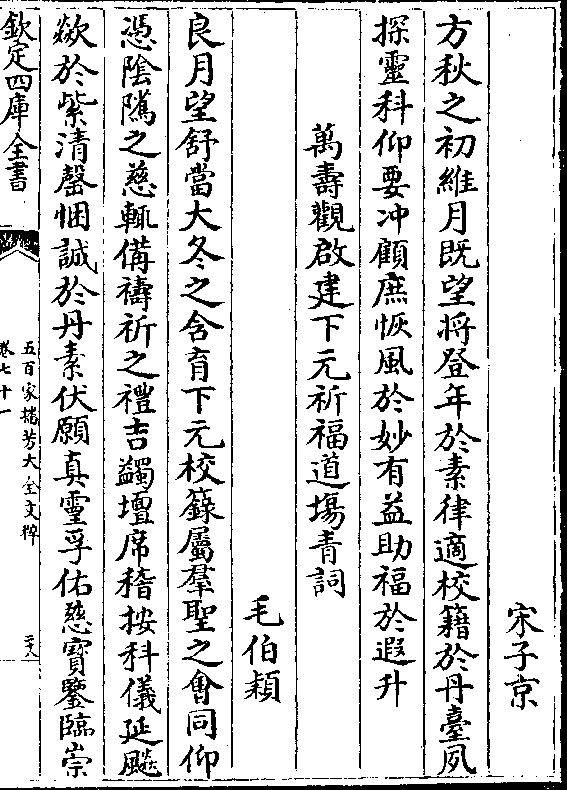 宋子京
方秋之初維月既望将登年於素律適校籍於丹臺夙
探靈科仰要冲顧庶恢風於妙有益助福於遐升
萬壽觀啟建下元祈福道場青詞
毛伯穎
良月望舒當大冬之含育下元校籙屬羣聖之會同仰
憑陰隲之慈輒偹禱祈之禮吉蠲壇席稽按科儀延飈
歘於紫清罄悃誠於丹素伏願真靈孚佑慈寶鑒臨崇
欽定四庫全書
五百家播芳大全文粹
卷七十一